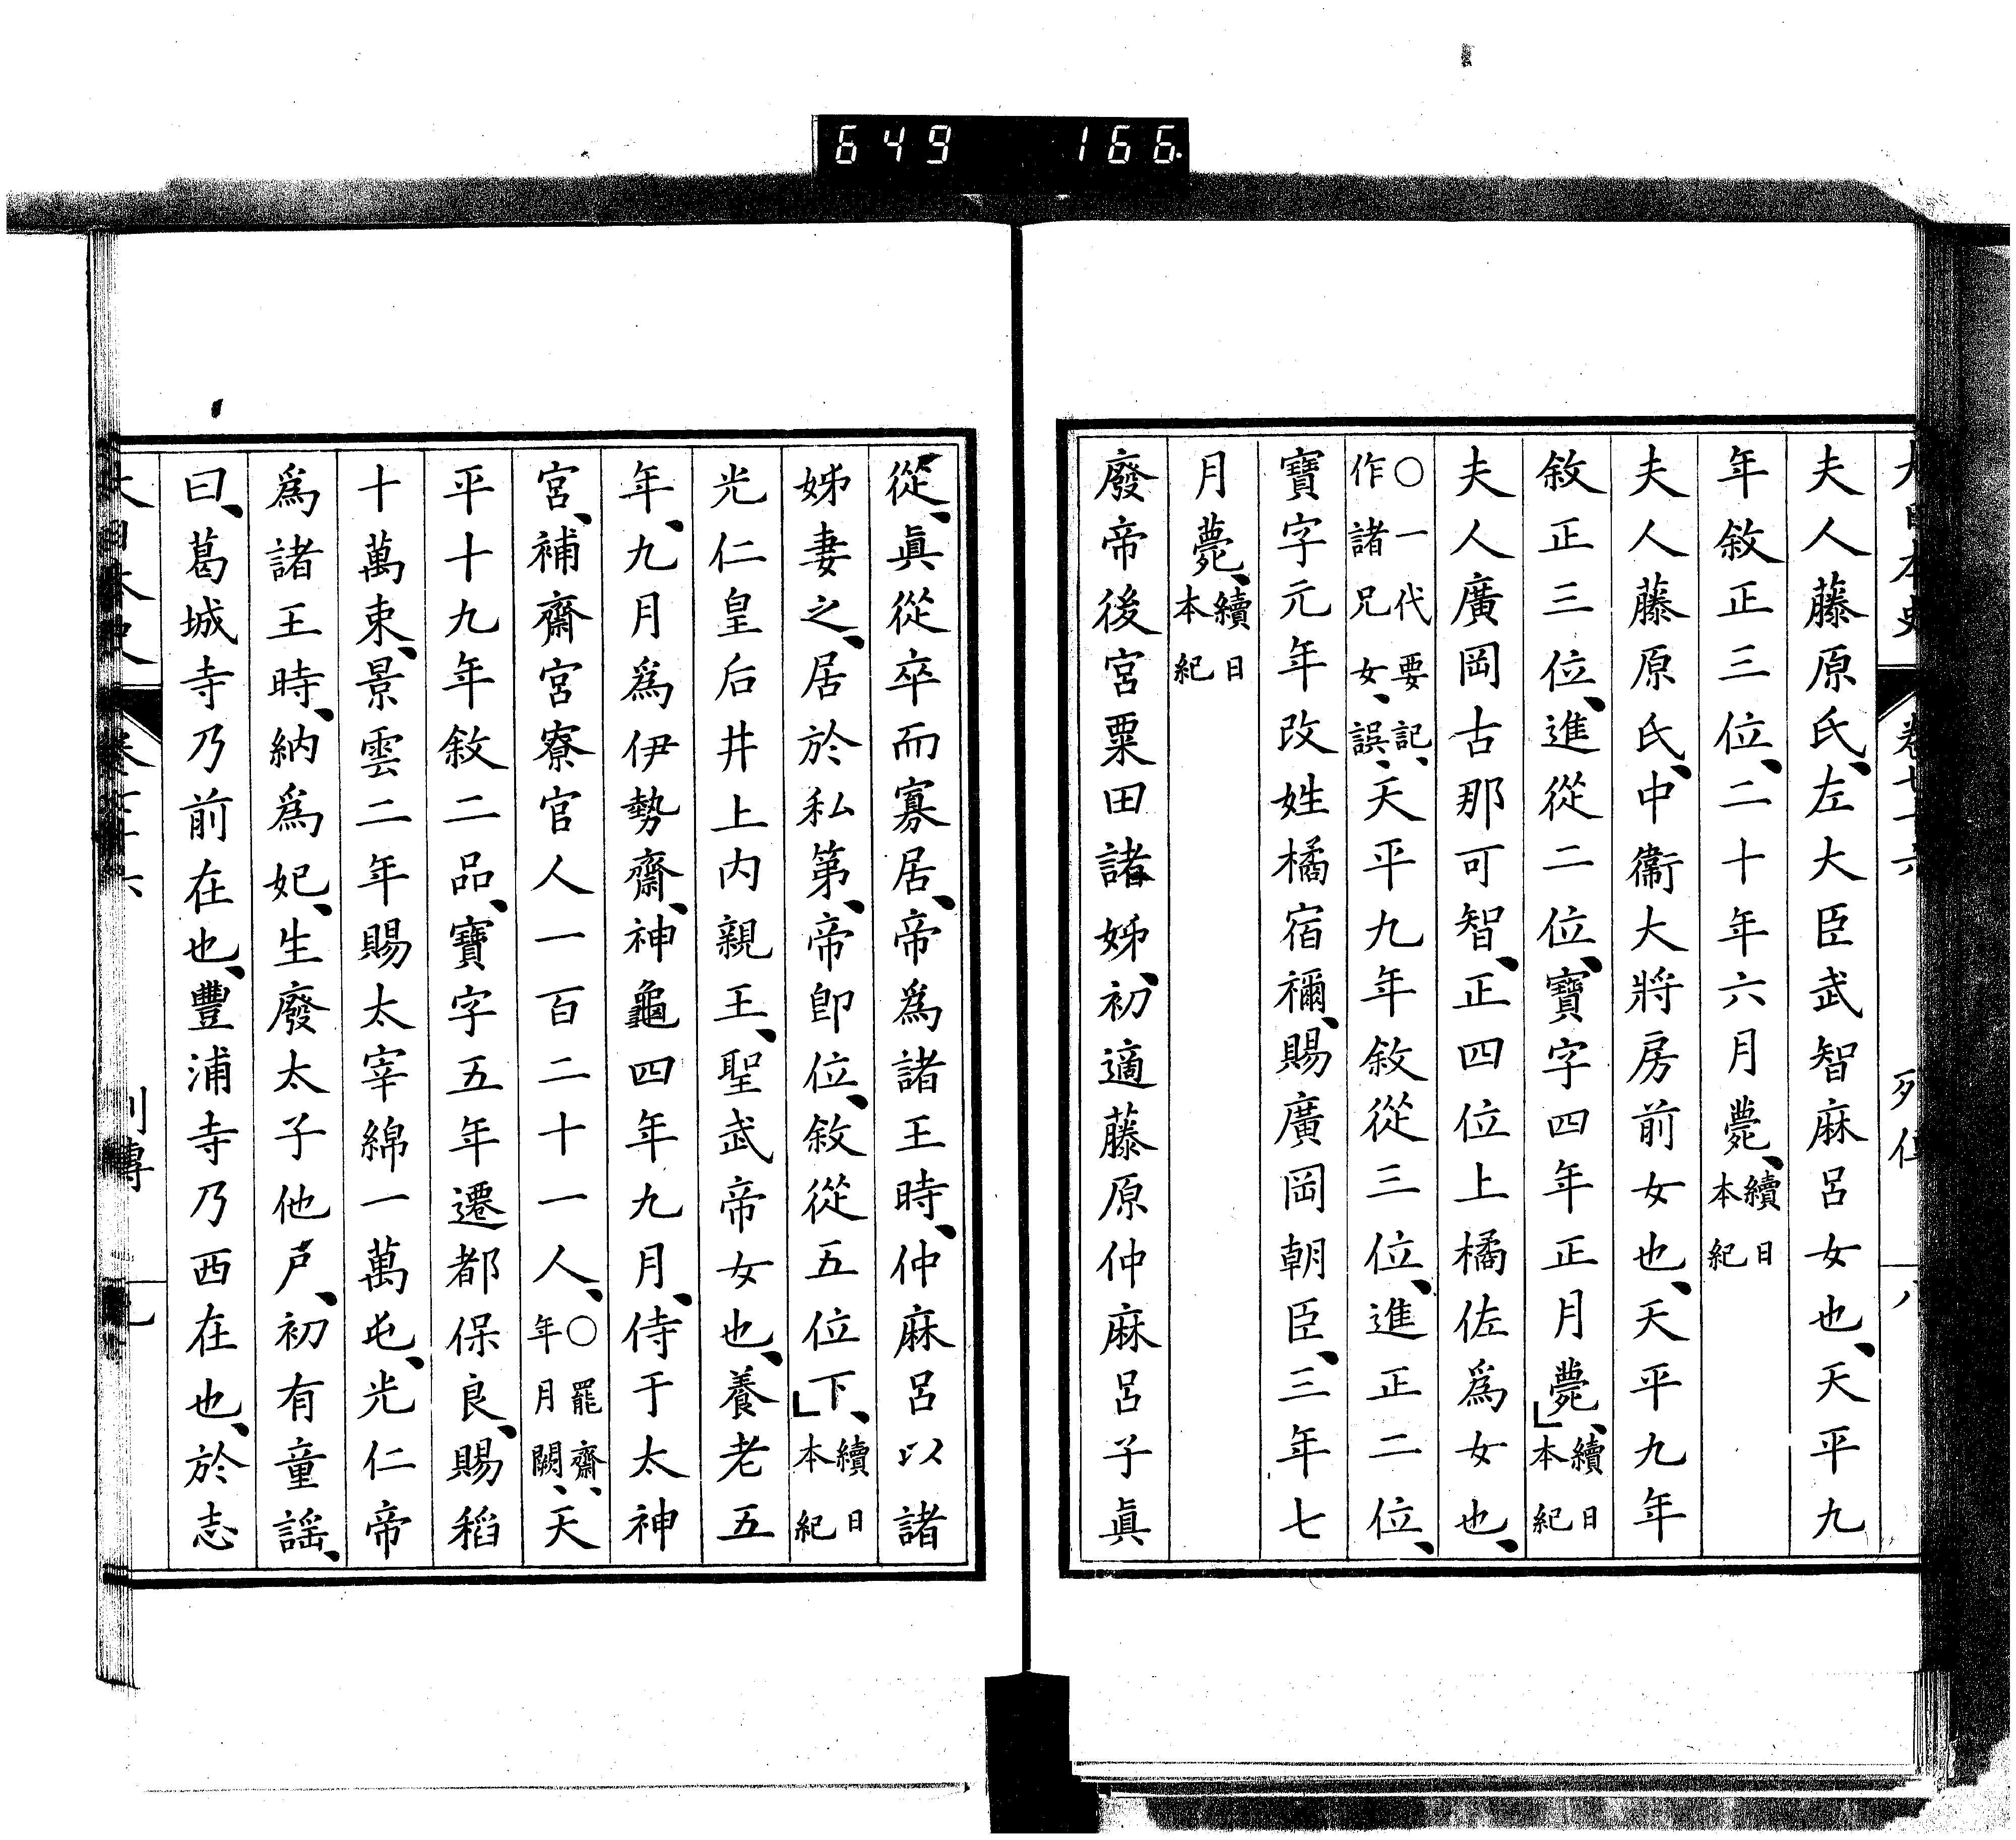 649 166.
夫人藤原氏、左大臣武智麻呂女也、天平九
年敘正三位、二十年六月薨、續日本紀
夫人藤原氏、中衞大將房前女也、天平九年
敘正三位、進從二位、寶字四年正月薨、續日本紀
夫人廣岡古那可智、正四位上橘佐爲女也、
〇一代要記、作諸兄女、誤、天平九年敘從三位、進正二位、
寶字元年改姓橘宿禰、賜廣岡朝臣、三年七
月薨、續日本紀
廢帝後宮粟田諸姊、初適藤原仲麻呂子眞
從、眞從卒而寡居、帝爲諸王時、仲麻呂以諸
姊妻之、居於私第、帝卽位、敘從五位下、續日本紀
光仁皇后井上内親王、聖武帝女也、養老五
年、九月爲伊勢齋、神龜四年九月、侍于太神
宮、補齋宮寮官人一百二十一人、〇罷齋、年月闕、天
平十九年敘二品、寶字五年遷都保良、賜稻
十萬束、景雲二年賜太宰綿一萬屯、光仁帝
爲諸王時、納爲妃、生廢太子他戶、初有童謠、
曰、葛城寺乃前在也、豐浦寺乃西在也、於志